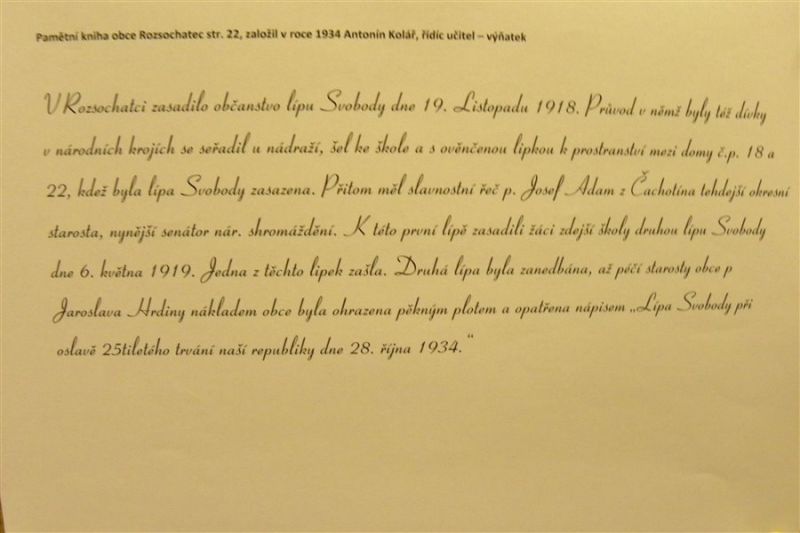 Pamětní kniha obce Rozsochatec str. 22, založil v roce 1934 Antonín Kolář, řídíc učitel – výňatek
V Rozsochatci zasadilo občanstvo lípu Svobody dne 19. Listopadu 1918. Průvod v němž byly též dívky
v národních krojích se seřadil u nádraží, šel ke škole a s ověnčenou lípkou k prostranství mezi domy č.p. 18 a
22, kdež byla lípa Svobody zasazena. Přitom měl slavnostní řeč p. Josef Adam z Čachotína tehdejší okresní
starosta, nynější senátor nár. shromáždění. K této první lípě zasadili žáci zdejší školy druhou lípu Svobody
dne 6. května 1919. Jedna z těchto lipek zašla. Druhá lípa byla zanedbána, až péčí starosty obce p
Jaroslava Hrdiny nákladem obce byla ohrazena pěkným plotem a opatřena nápisem „Lípa Svobody při
oslavě 25tiletého trvání naší republiky dne 28. října 1934.“